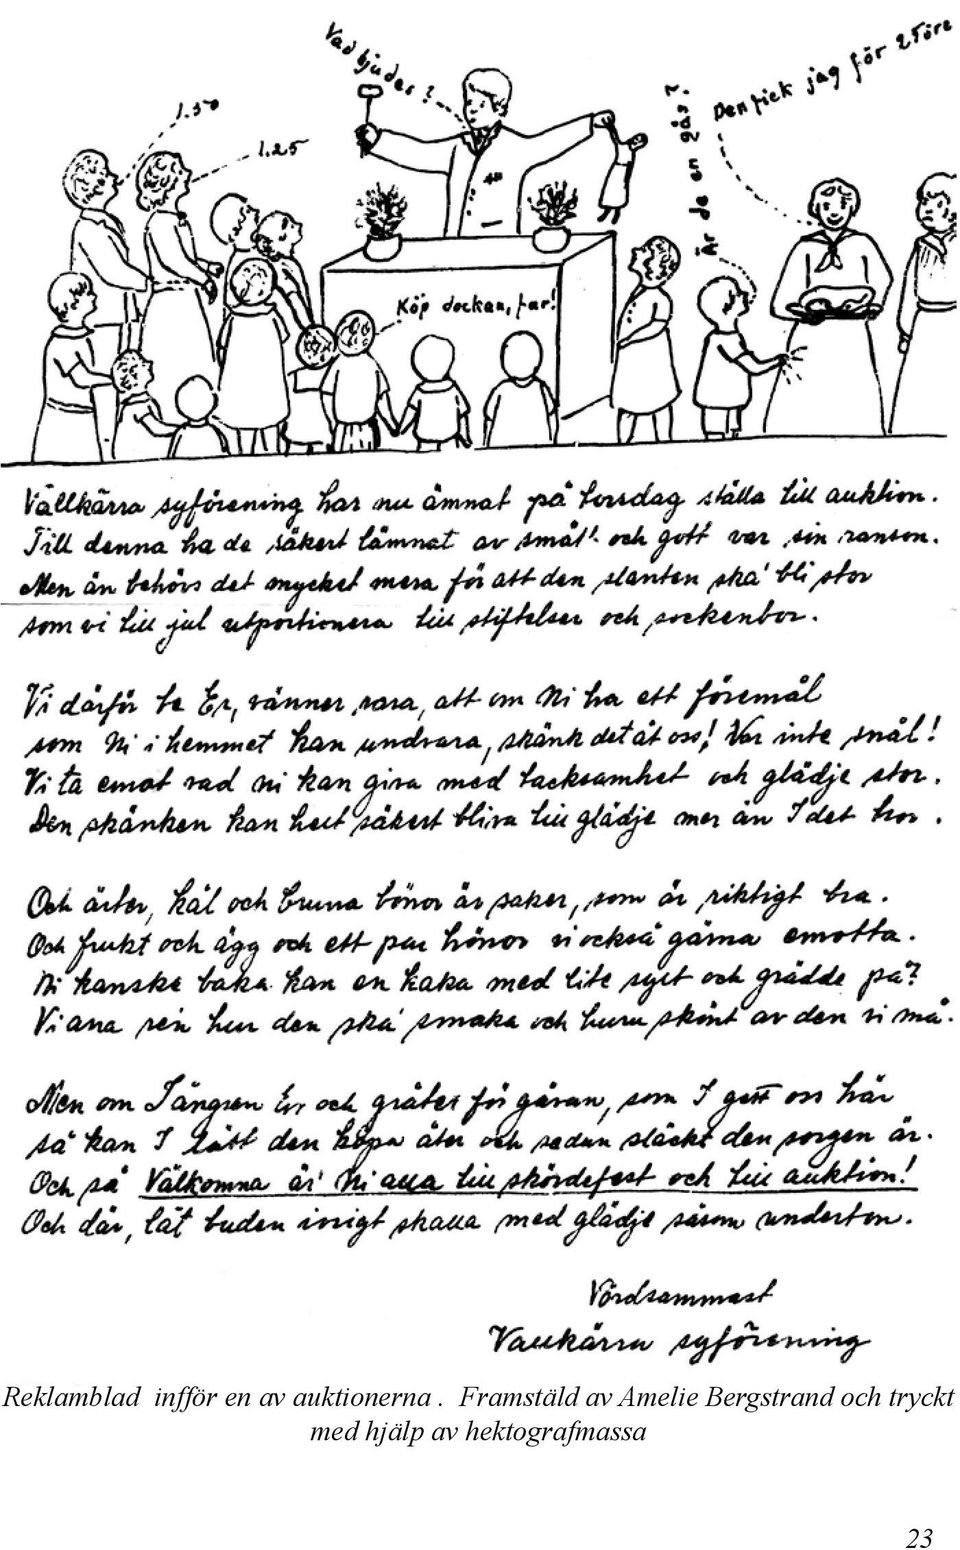 Vad bjudes?
Den fick jag för 25 öre
1.50
1.25
Är de en gås?
Köp dockan, far!
Vallkärra syförening har nu ämnat på torsdag ställa till auktion.
Till denna ha de säkert lämnat av smått och gott var sin ranson.
Men än behövs det mycket mera för att den slanten ska' bli stor
som vi till jul utportionera till stiftelser och sockenbor.
Vi därför be Er, vänner rara, att om Ni ha ett föremål
som Ni i hemmet kan undvara, skänk det åt oss! Var inte snål!
Vi ta emot vad ni kan giva med tacksamhet och glädje stor.
Den skänken kan helt säkert bliva till glädje mer än I det tror.
Och ärter, kål och bruna bönor är saker, som är riktigt bra.
Och frukt och ägg och ett par hönor vi också gärna emotta.
Ni kanske baka kan en kaka med lite sylt och grädde på?
Vi ana re'n hur den ska' smaka och huru skönt av den vi må.
Men om I ängren Er och gråter för gåvan, som I gett oss här
så kan I lätt den köpa åter och sedan släckt den sorgen är.
Och så Välkomna är' Ni alla till skördefest och till auktion!
Och där, låt buden ivrigt skalla med glädje såsom underton.
Vördsammast
Vallkärra syförening
Reklamblad infför en av auktionerna. Framstäld av Amelie Bergstrand och tryckt
med hjälp av hektografmassa
23